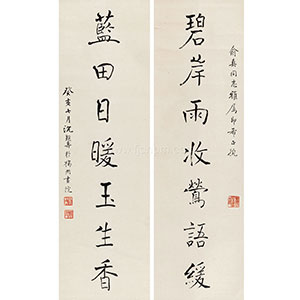 俞真同志雅属即希正腕
碧岸雨收鶯語緩
藍田日暖玉生香
癸亥七月沈
於揚州書院